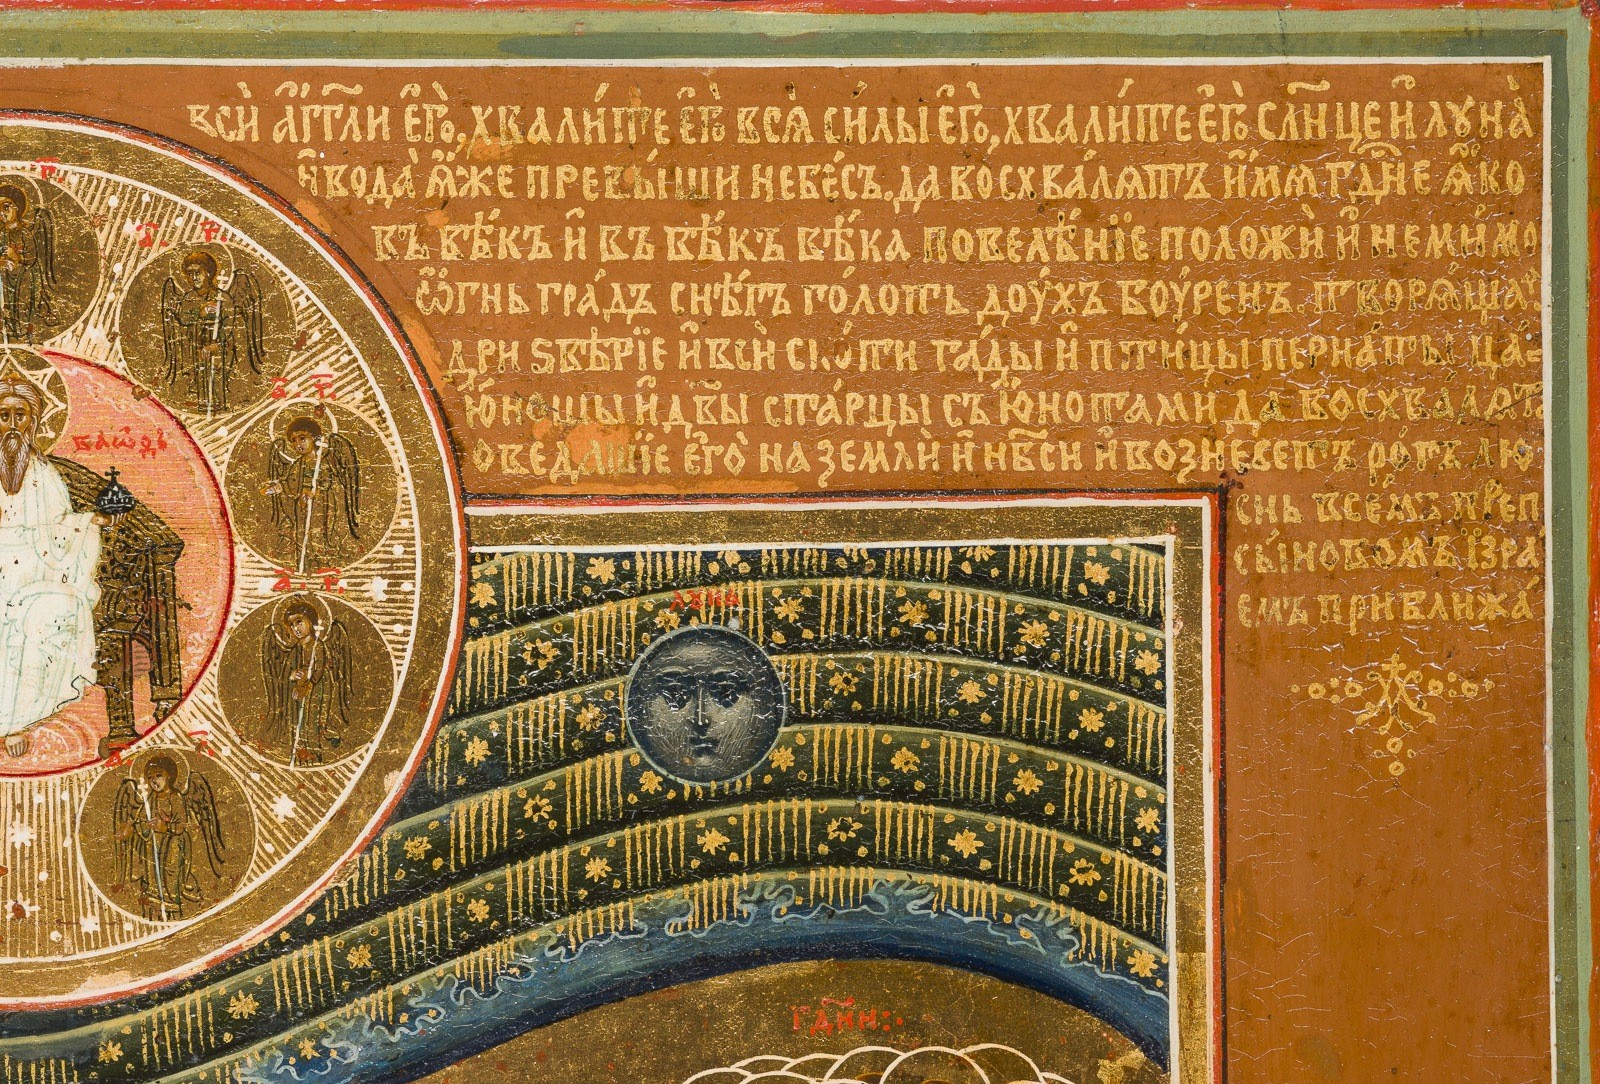 всѝ а҆́гг҃ли є҆гѡ̀, хвали́те є҆го̀ всѧ̀ си́лы є҆гѡ̀, хвали́те є҆го̀ сл҃нце и҆ луна̀
и҆ вода̀ ꙗ҆́же превы́ши небе́съ. да восхва́лѧтъ и҆́мѧ гд҃не ꙗ҆́ко
въ вѣ́къ и҆ въ вѣ́къ вѣ́ка повелѣ́нїе положѝ и҆ не ми́мо
ѻ҆́гнь гра́дъ снѣ́гъ го́лоть доу́хъ боу́ренъ. творѧ́ща
дри ѕвѣ́рїе и҆ всѝ ско́ти га́ды и҆ пти́цы перна́ты ца-
ю҆́ношы и҆ дв҃ы ста́рцы съ ю҆́нотами да восхва́лѧт
ѡведа́нїе є҆гѡ̀ на землѝ и҆ нб҃сѝ и҆ вознесетъ ро́гъ лю
снь все́мъ преп
сы́новомъ їзра
емъ приближа́
т҃. г҃.
саѡѳъ
а҃. г҃.
луна
гд҃ни: